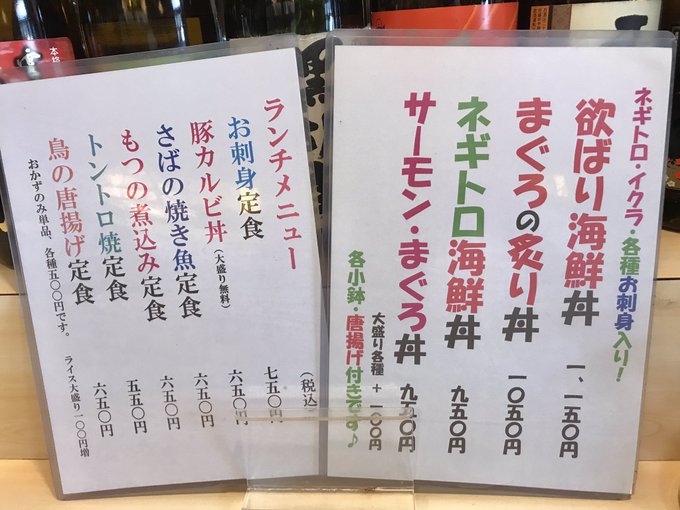 ランチメニュー
(税込)
お刺身定食 七五〇円
豚カルビ丼(大盛り無料) 六五〇円
さばの焼き魚定食 六五〇円
もつの煮込み定食 六五〇円
トントロ焼定食 五五〇円
鳥の唐揚げ定食 六五〇円
おかずのみ単品、各種五〇〇円です。 ライス大盛り一〇〇円増
ネギトロ・イクラ・各種お刺身入り!
欲ばり海鮮丼 一、一五〇円
まぐろの炙り丼 一〇五〇円
ネギトロ海鮮丼 九五〇円
サーモン・まぐろ丼 九五〇円
大盛り各種+一〇〇円
各小鉢・唐揚げ付きです♪
本格